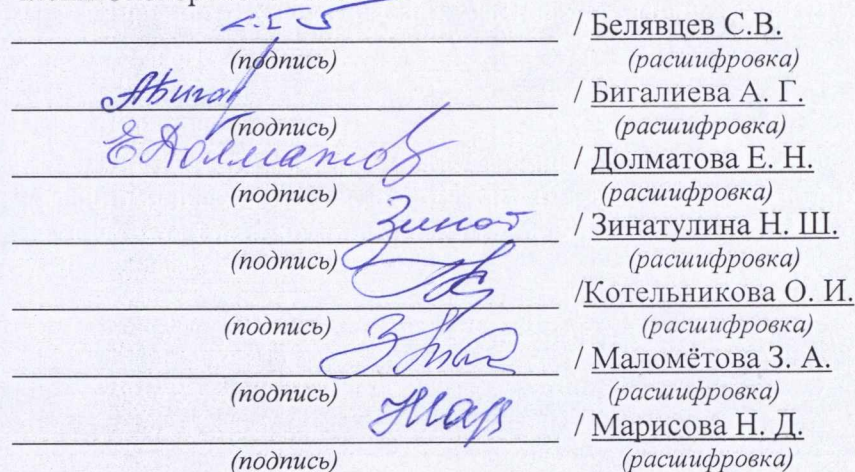 / Белявцев С.В.
(подпись) (расшифровка)
/ Бигалиева А. Г.
(подпись) (расшифровка)
ЕДолматов / Долматова Е. Н.
(подпись) (расшифровка)
Зинат / Зинатулина Н. Ш.
(подпись) (расшифровка)
/Котельникова О. И.
(подпись) (расшифровка)
/ Маломётова З. А.
(подпись) (расшифровка)
/ Марисова Н. Д.
(подпись) (расшифровка)